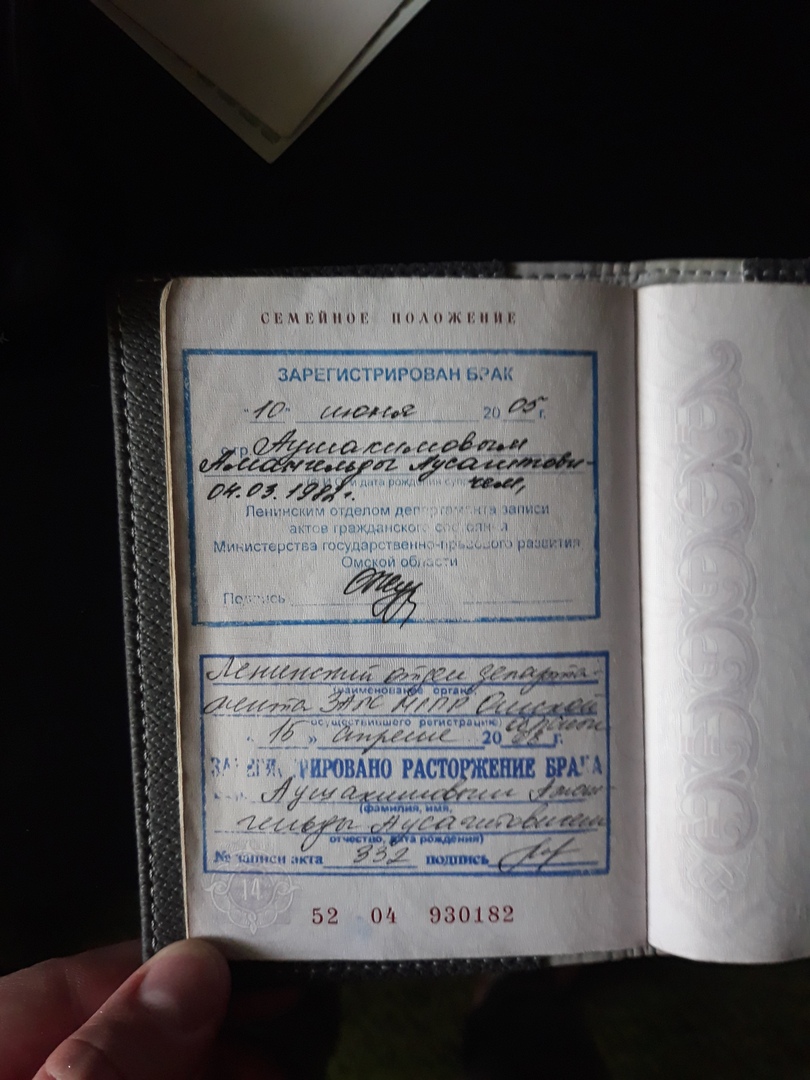 СЕМЕЙНОЕ ПОЛОЖЕНИЕ
ЗАРЕГИСТРИРОВАН БРАК
"10" июня 2005 г.
гр. Аушакимовым
Амангельды Аусагитови-
чем,
04.03.1982г.
и дата рождения
Ленинским отделом департамента записи
актов гражданского состояния
Министерства государственно-правового развития
Омской области
Подпись
Ленинский отдел департа-
наименование органа
мента ЗАГС МГПР Омской
осуществившего регистрацию
области
"15" апреля 20 г.
ЗАРЕГИСТРИРОВАНО РАСТОРЖЕНИЕ БРАКА
Аушакимовым Аман-
(фамилия, имя,
гельды Аусагитовичем
отчество, дата рождения)
№ записи акта 332 подпись
14
52 04 930182